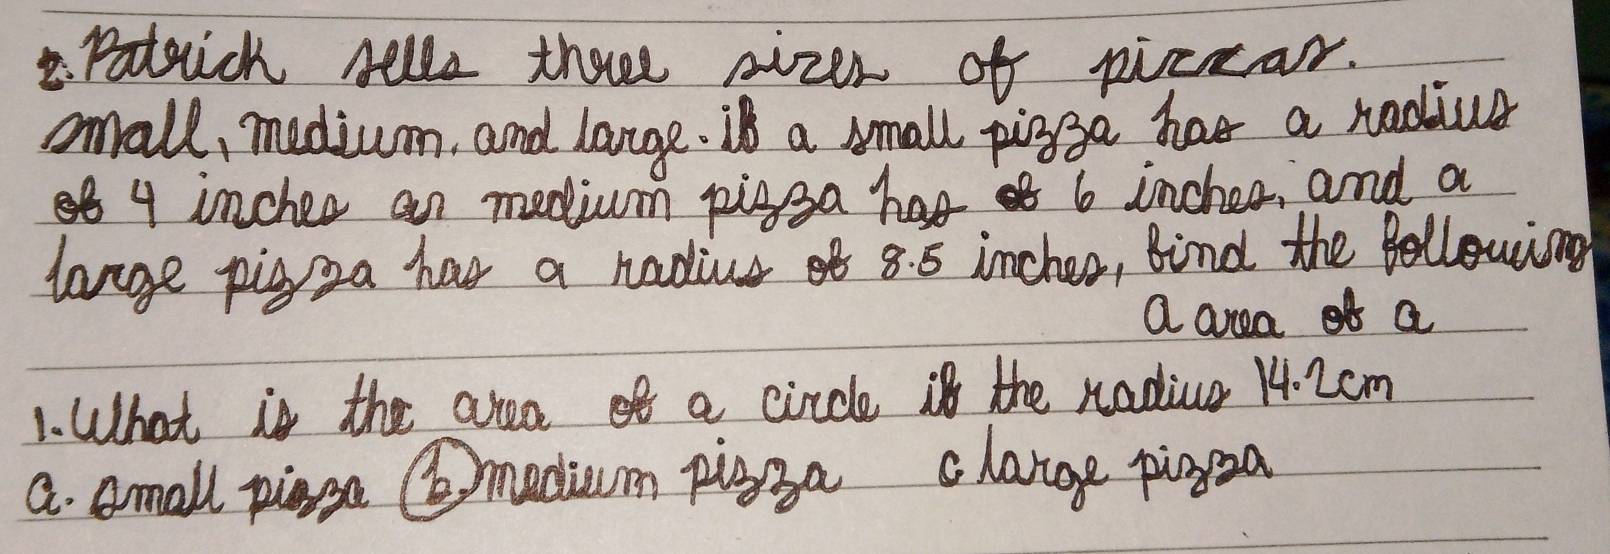 2. Patrick sells three sizes of pizzas.
small, medium, and large. if a small pizza has a radius
of 4 inches an medium pizza has of 6 inches, and a
large pizza has a radius of 8.5 inches, find the following
a area of a
1. What is the area of a circle if the radius 14.2cm
a. small pizza b. medium pizza c large pizza